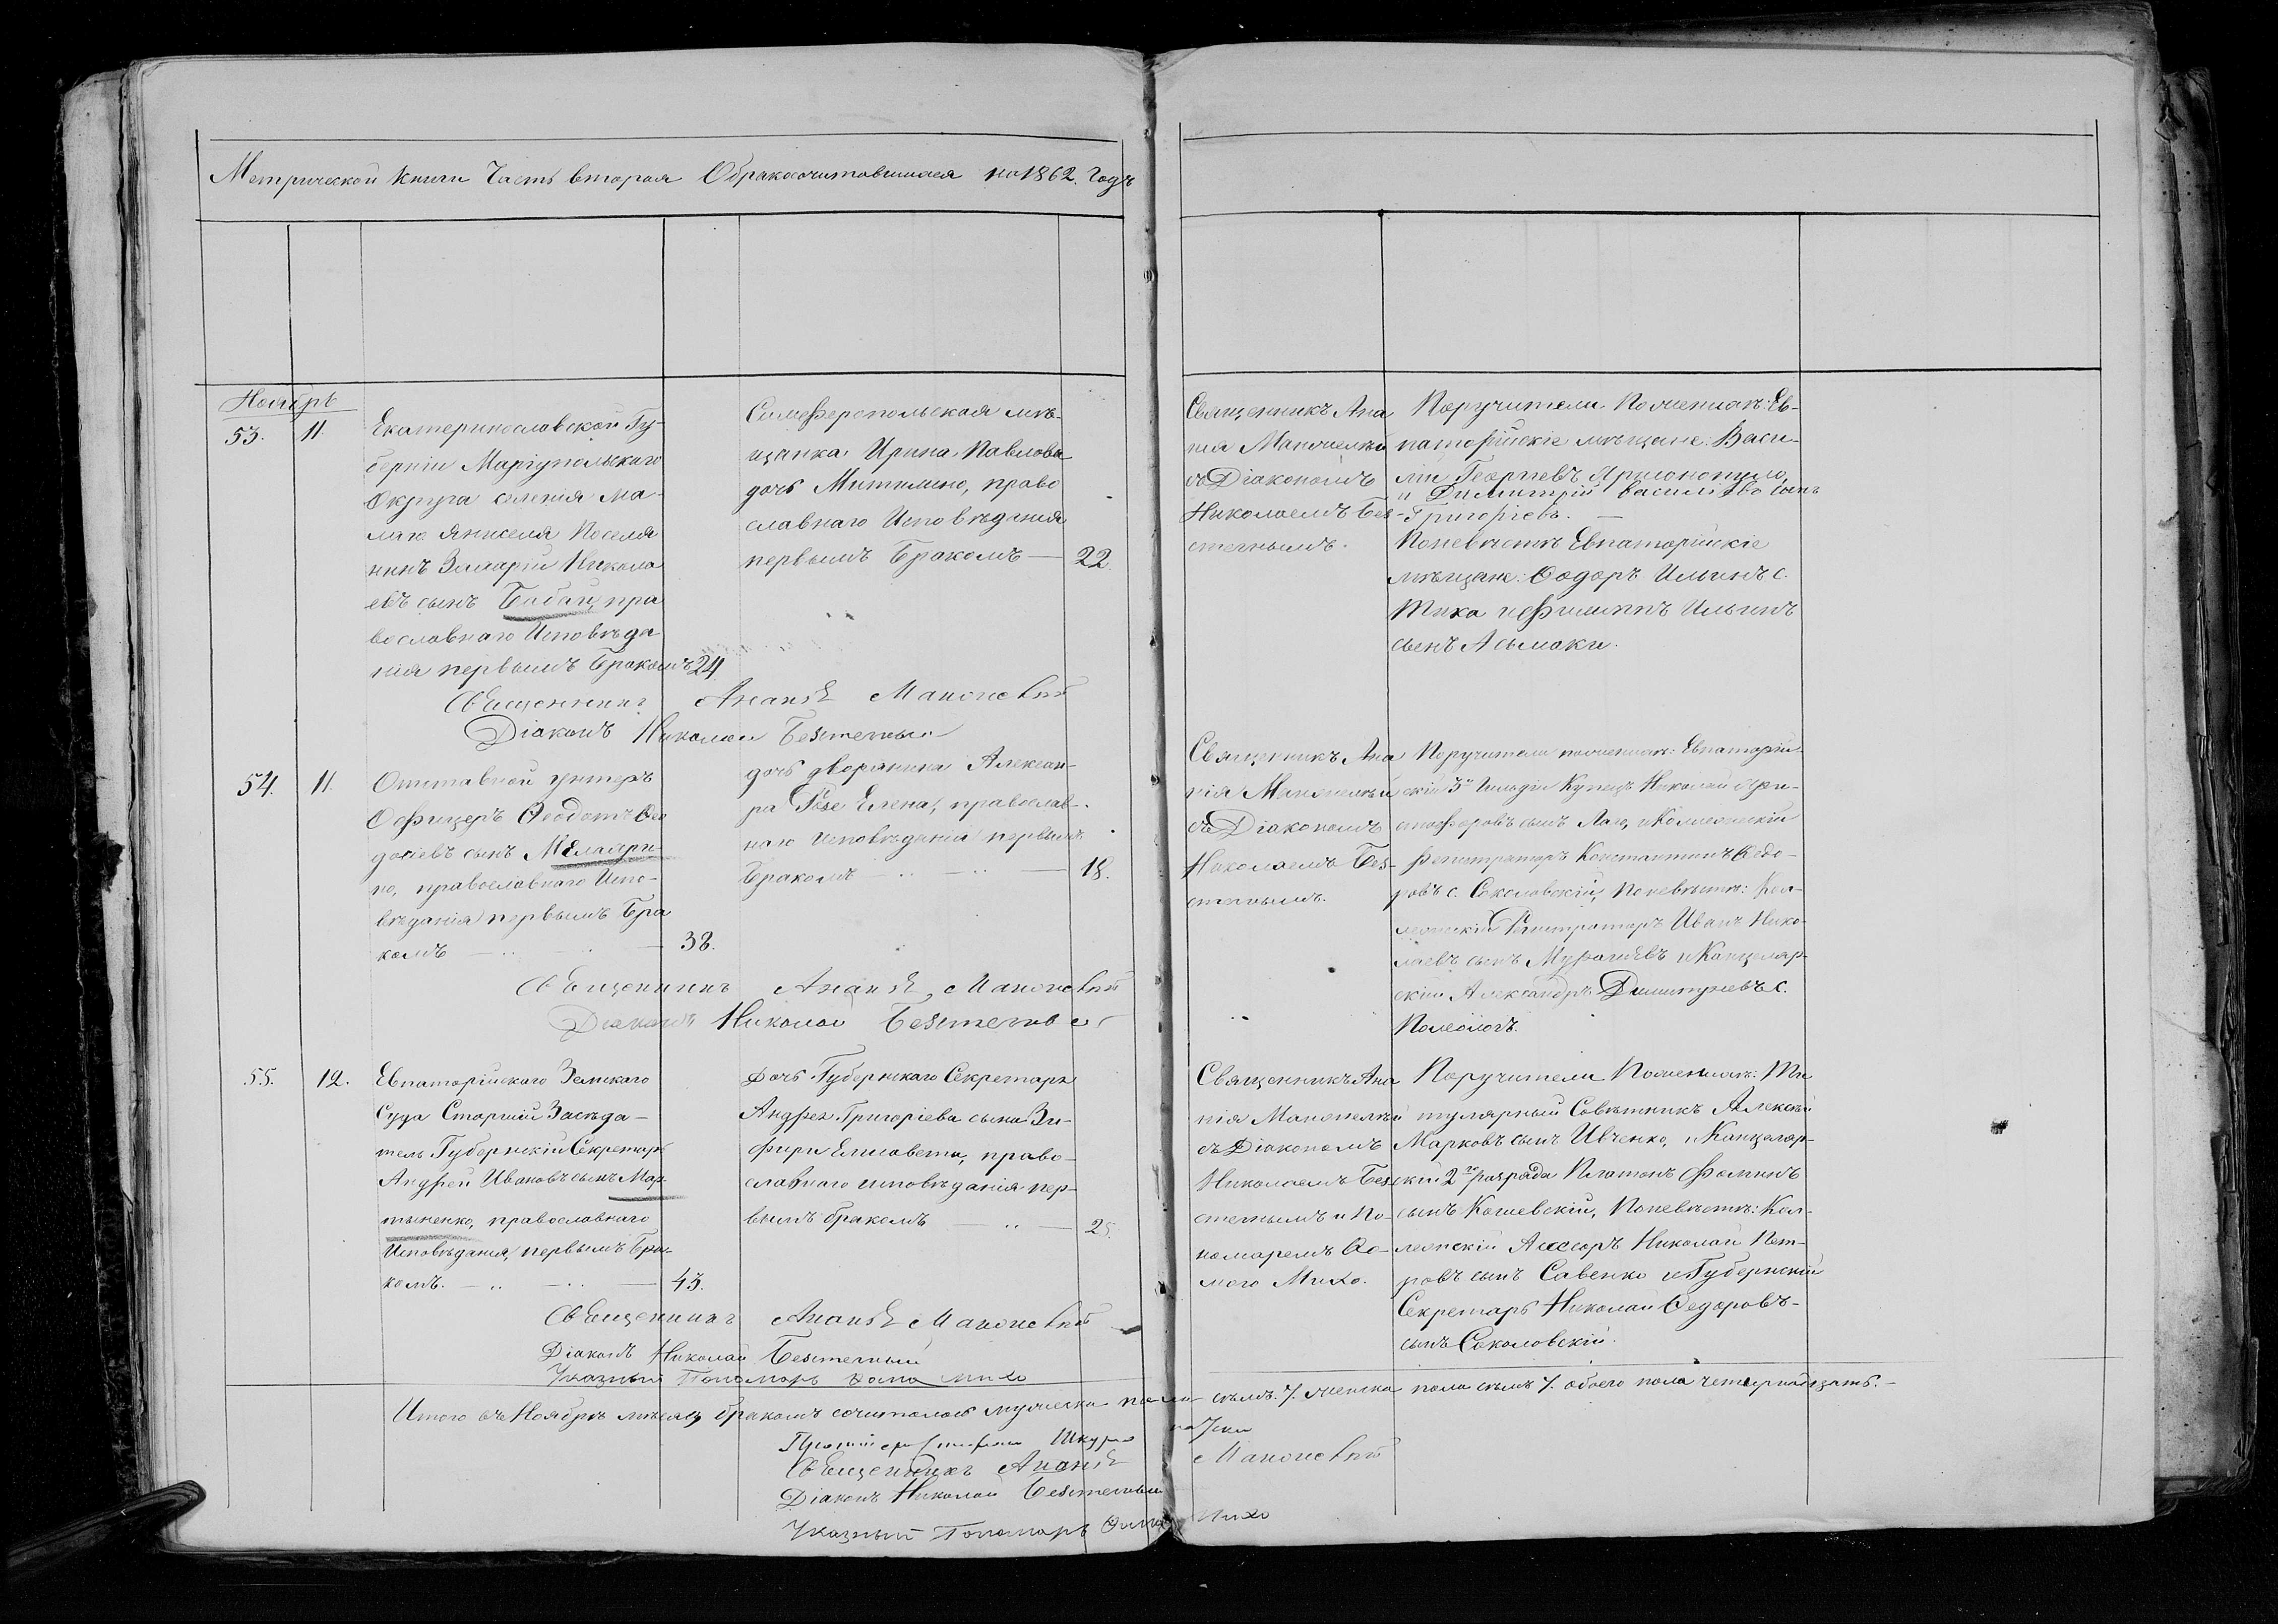 Метрической книги Часть вторая О бракосочитавшихся на 1862. Годъ
Ноябрь
53. 11.
Екатеринославской Гу-
берніи Маріупольскаго
Округа селенія Ма-
лаго Яниселя Поселя
нинъ Захарій Никола
евъ сынъ Бабац, пра
вославнаго Исповѣда
нія первымъ Бракомъ 24
Симферопольская мѣ-
щанка Ирина Павлова
дочь Митилино, право
славнаго Исповѣданія
первымъ Бракомъ — 22.
Священникъ Ана
нія Маножелѣй
съ Діакономъ
Николаемъ Без-
стечнымъ.
Поручители По женихѣ: Ев-
паторійскіе мѣщане: Васи-
лій Георгіевъ
и Димитрій Василіевъ сынъ
Григоріевъ. —
По невѣстѣ Евпаторійскіе
мѣщане: Ѳодоръ Ильинъ с.
Тика и Филиппъ Ильинъ
сынъ Асымаки.
Священникъ Ананій
Діаконъ Николай
54. 11.
Отставной унтеръ
Офицеръ Ѳеодотъ Ѳео
досіевъ сынъ
но, православнаго Испо-
вѣданія первымъ Бра
комъ — .. — .. — 38.
дочь дворянина Алексан-
ра Розе Елена, православ-
наго Исповѣданія первымъ
Бракомъ — .. — .. — 18.
Священникъ Ана
нія
съ Діакономъ
Николаемъ Без-
стечнымъ.
Поручители по женихѣ: Евпаторій-
скій 3й Гильдіи Купецъ Николай Хри-
стофоровъ сынъ Лаго, и Коллежскій
Регистраторъ Константинъ Ѳедо-
ровъ с. Соколовскій, По невѣстѣ: Кол-
лежскій Регистраторъ Иванъ Нико-
лаевъ сынъ и Канцеляр-
скій Александръ Димитріевъ с.
Полеологъ.
Священникъ Ананій
Діаконъ Николай
55. 12.
Евпаторійскаго Земскаго
Суда Старшій Засѣда-
тель Губернскій Секретарь
Андрей Ивановъ сынъ Мар-
тыненко, православнаго
Исповѣданія, первымъ Бра-
комъ. — .. — .. — 43.
Дочь Губернскаго Секретаря
Андрея Григоріева сына Зи-
фири Елисавета, право-
славнаго исповѣданія пер-
вымъ бракомъ — .. — 25
Священникъ Ана
нія
съ Діакономъ
Николаемъ Без-
стечнымъ и По-
номаремъ Ѳо-
мою Михо.
Поручители По женихѣ: Ти
тулярный Совѣтникъ Алексѣй
Марковъ сынъ Ивченко, и Канцеляр-
скій 2го разряда Платонъ Фоминъ
сынъ Кошевскій, По невѣстѣ: Кол-
лежскій Ассесоръ Николай Пет-
ровъ сынъ Савенко и Губернскій
Секретарь Николай Ѳедоровъ-
сынъ Соколовскій.
Священникъ Ананій
Діаконъ Николай Безстечный
Указный Пономарь Ѳома Михо
Итого въ Ноябрѣ мѣсяцѣ бракомъ сочиталось мужеска пола семь 7. женска пола семь 7. обоего пола четырнадцать. —
Протоіерей
Священникъ Ананій
Діаконъ Николай Безстечный
Указный Пономарь Ѳома Михо